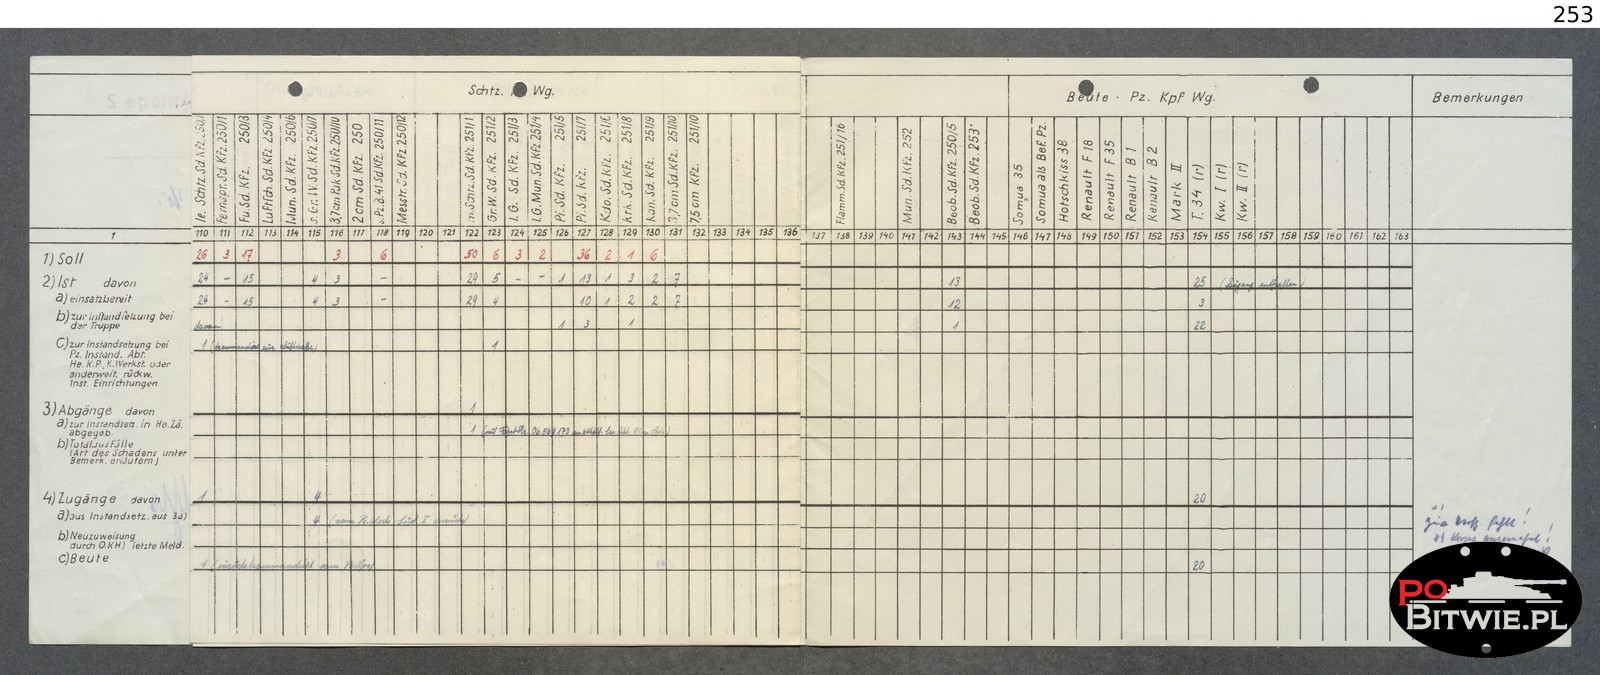 253
Schtz. Wg.
Beute - Pz. Kpf Wg.
Bemerkungen
le. Schtz. Sd. Kfz. 250/1
Fernspr. Sd. Kfz. 250/1
Fu. Sd. Kfz. 250/3
Luftfch. Sd. Kfz. 250/4
Mun. Sd. Kfz. 250/6
s. Gr. W. Sd. Kfz. 250/7
3,7 cm Pak Sd. Kfz. 250/10
2 cm Sd. Kfz. 250
s. Pz. B. 41 Sd. Kfz. 250/11
Messtr. Sd. Kfz. 250/12
m. Schtz. Sd. Kfz. 251/1
Gr. W. Sd. Kfz. 251/2
I. G. Sd. Kfz. 251/3
I. G. Mun. Sd. Kfz. 251/4
Pi. Sd. Kfz. 251/5
Pi. Sd. Kfz. 251/7
Kdo. Sd. Kfz. 251/6
Krk. Sd. Kfz. 251/8
Kan. Sd. Kfz. 251/9
3,7 cm Sd. Kfz. 251/10
7,5 cm Kfz. 251/10
Flamm. Sd. Kfz. 251/16
Mun. Sd. Kfz. 252
Beob. Sd. Kfz. 250/5
Beob. Sd. Kfz. 253
Somua 35
Somua als Bef. Pz.
Hotschkiss 38
Renault F 18
Renault F 35
Renault B 1
Renault B 2
Mark II
T. 34 (r)
Kw. I (r)
Kw. II (r)
1 110 111 112 113 114 115 116 117 118 119 120 121 122 123 124 125 126 127 128 129 130 131 132 133 134 135 136 137 138 139 140 141 142 143 144 145 146 147 148 149 150 151 152 153 154 155 156 157 158 159 160 161 162 163
1) Soll 26 3 17 3 6 50 6 3 2 36 2 1 6
2) Ist davon 24 - 15 4 3 - 29 5 - - 1 13 1 3 2 7 13 25
a) einsatzbereit 24 - 15 4 3 29 4 10 1 2 2 7 12 3
b) zur Instandsetzung bei
der Truppe davon 1 3 1 1 22
c) zur Instandsetzung bei 1 1
Pz. Instand. Abt.
He. K.P., K. Werkst. oder
anderweit. rückw.
Inst. Einrichtungen
3) Abgänge davon 1
a) zur Instandsetz. in He. Zä. 1
abgegeb.
b) Totalausfälle
(Art des Schadens unter
Bemerk. erläutern)
4) Zugänge davon 1 4 20
a) aus Instandsetz. aus 3a) 4
b) Neuzuweisung
durch O.KH) letzte Meld.
c) Beute 1 20
fehlt!
PO
BITWIE.PL